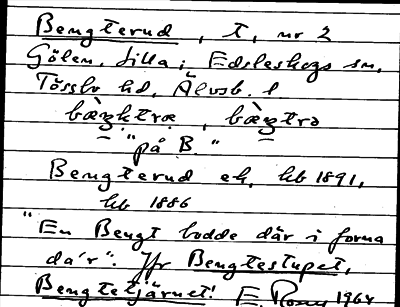 Bengterud, t, nr 2
Gölen, Lilla; Edsleskogs sn,
Tössbo hd, Älvsb. l.
bæ̀ŋktrə, bæ̀ŋtrə
"på B."
Bengterud ek, hb 1891,
hb 1886
"En Bengt bodde där i forna
da'r". Jfr Bengtestupet,
Bengtetjärnet! E. 1964